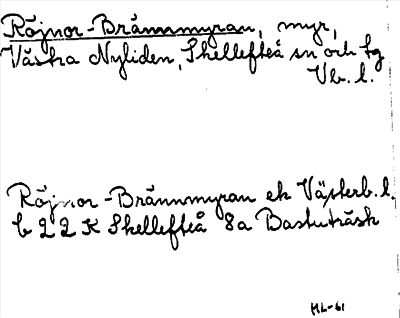 Röjnor-Brännmyran, myr,
Västra Nyliden, Skellefteå sn och tg
Vb. l.
Röjnor-Brännmyran ek Västerb. l.
b 22 K Skellefteå 8a Bastuträsk
HL-61